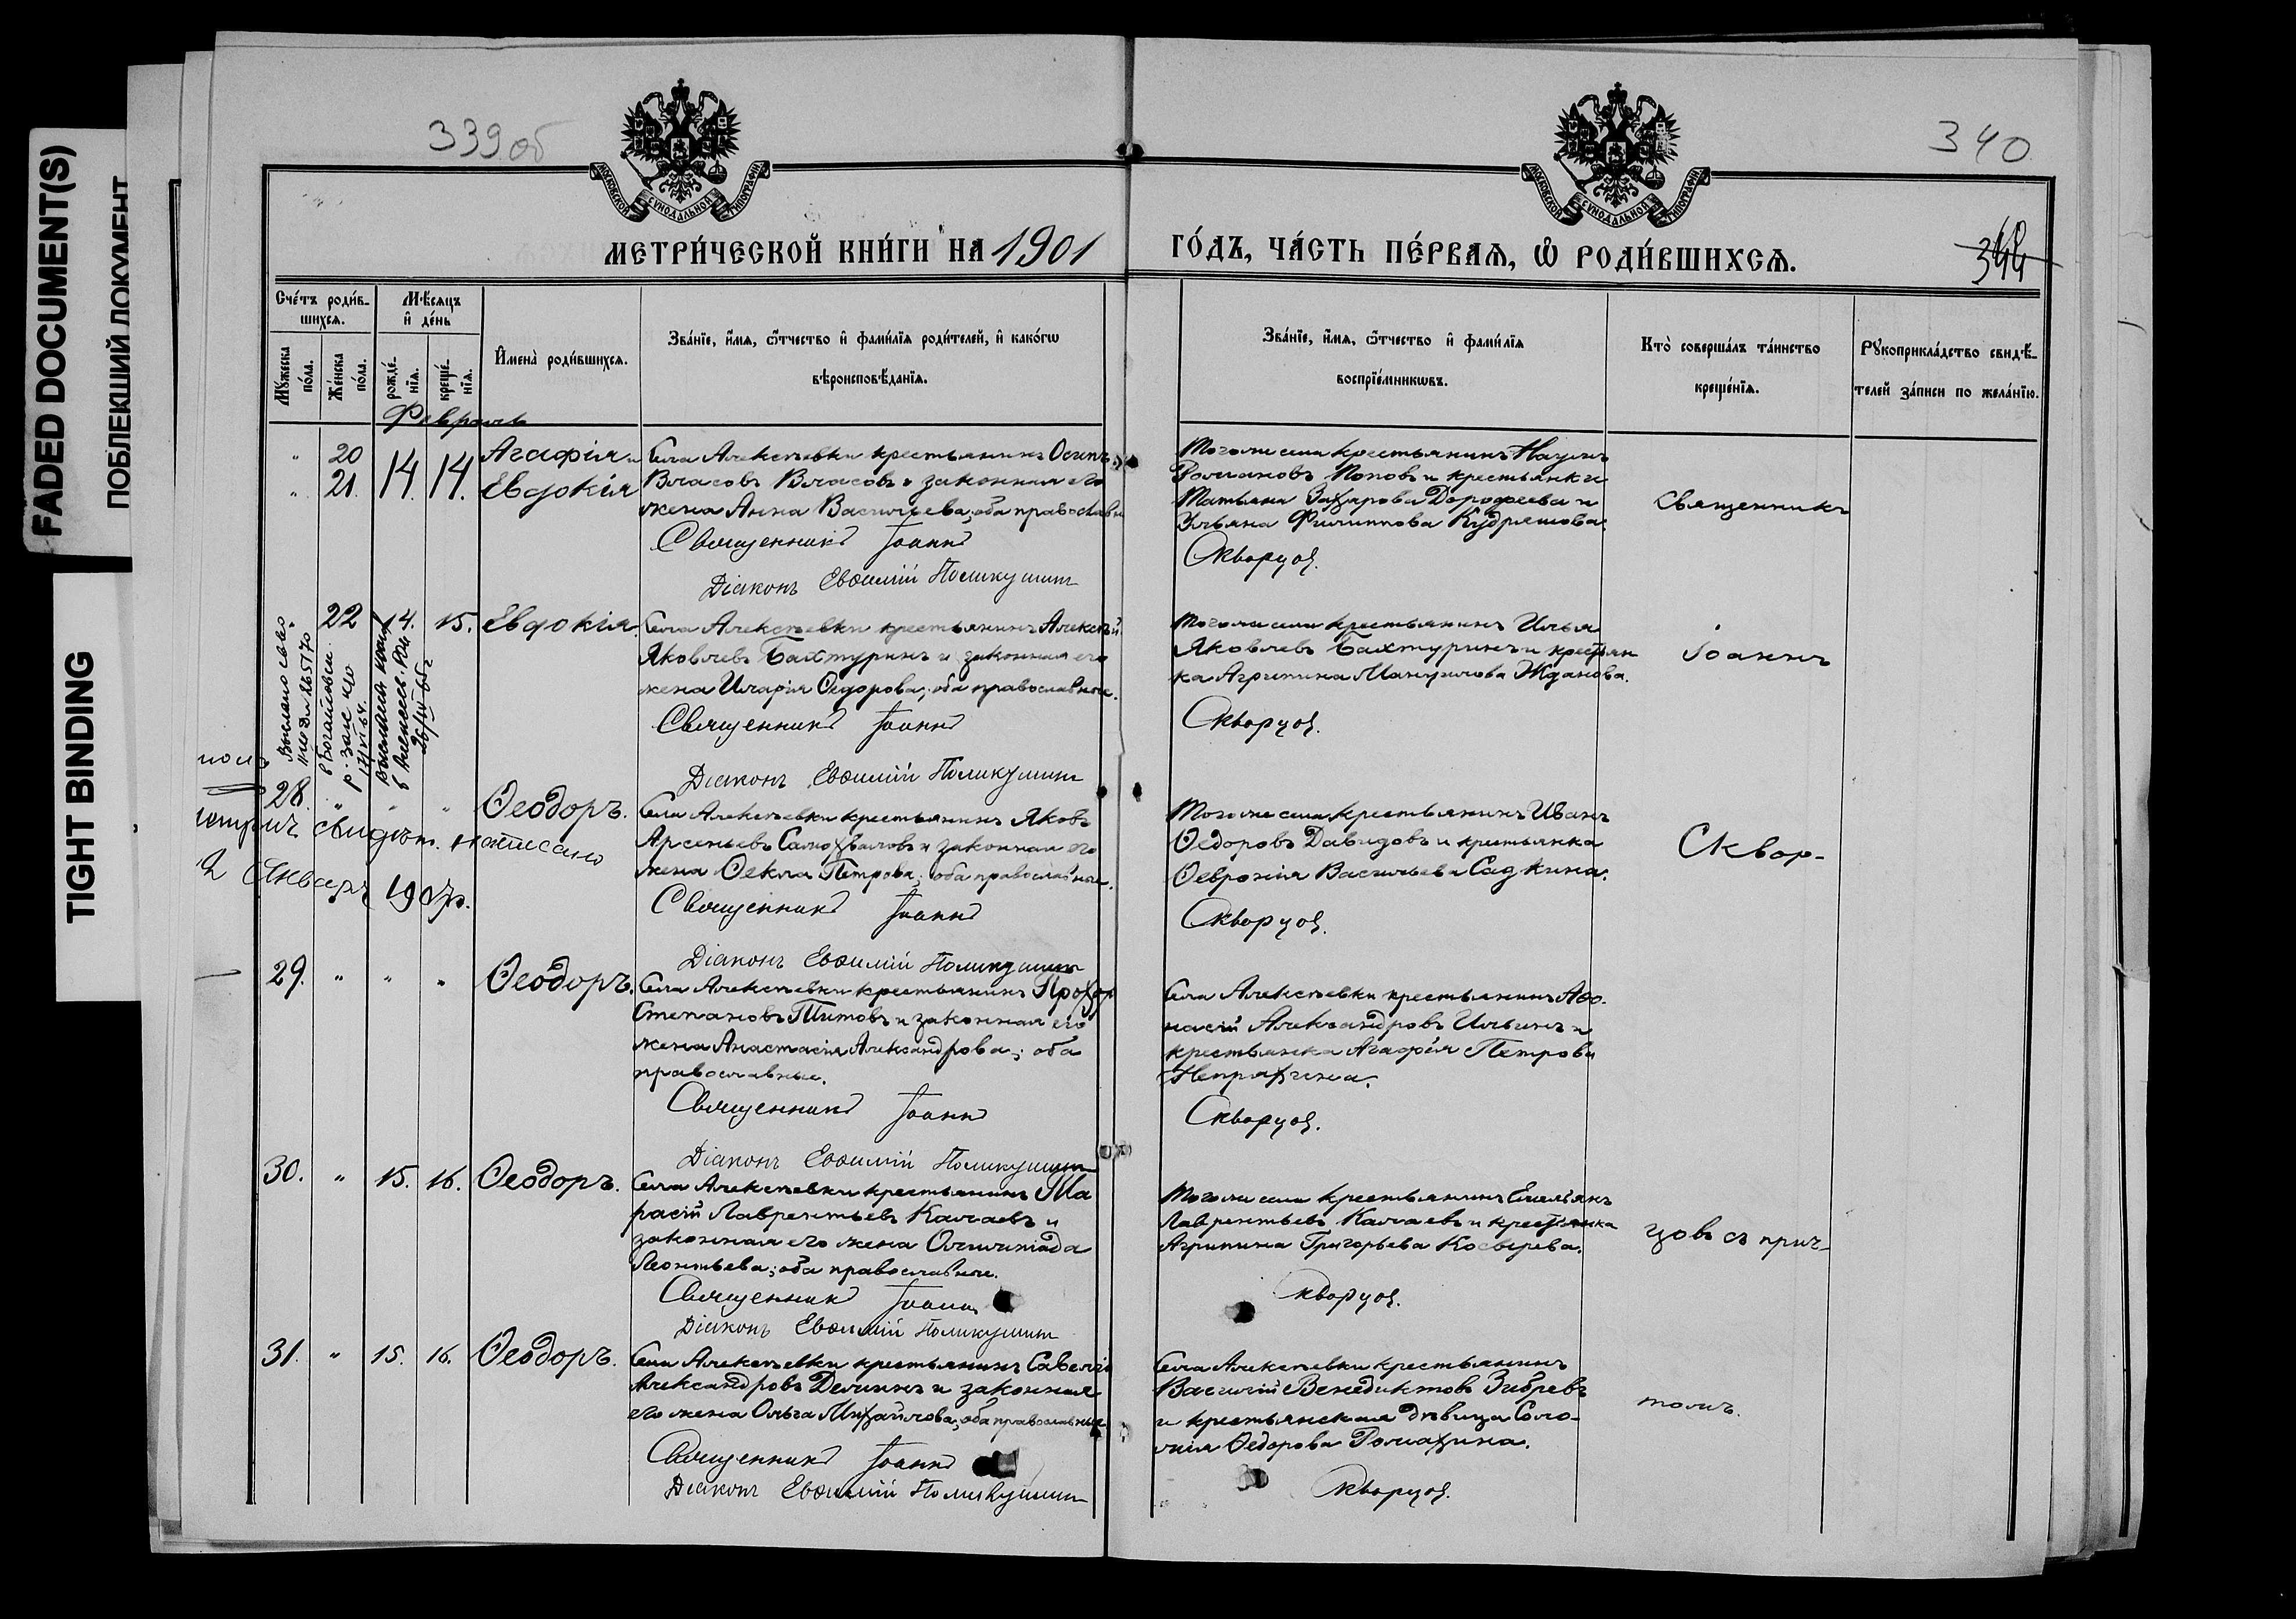 FADED DOCUMENT(S)
ПОБЛЕКШИЙ ДОКУМЕНТ
TIGHT BINDING
339 об
340
344
МОСКОВСКОЙ СѴНОДАЛЬНОЙ ТИПОГРАФІИ
МОСКОВСКОЙ СѴНОДАЛЬНОЙ ТИПОГРАФІИ
МЕТРИ́ЧЕСКОЙ КНИ́ГИ НА 1901
ГО́ДЪ, ЧА́СТЬ ПЕ́РВАѦ, Ѡ РОДИ́ВШИХСѦ.
Сче́тъ роди́в-
шихсѧ.
Мꙋ́жеска
по́ла.
Же́нска
по́ла.
Мѣ́сяцъ
и де́нь
рожде́-
нїѧ.
креще́-
нїѧ.
Имена̀ роди́вшихсѧ.
Зва́нїе, и́мѧ, ѻ́тчество и фами́лїѧ роди́телей, и како́гѡ
вѣроисповѣ́данїѧ.
Зва́нїе, и́мѧ, ѻ́тчество и фами́лїѧ
воспрїе́мникѡвъ.
Кто̀ соверша́лъ та́инство
креще́нїѧ.
Рꙋкоприкла́дство свидѣ́-
телей за́писи по жела́нїю.
Февраль
" 20
" 21. 14. 14.
Агафія и
Евдокія
Села Алексѣевки крестьянинъ Осипъ
Власовъ Власовъ и законная его
жена Анна Васильева; оба православн.
Священникъ Іоаннъ
Діаконъ Евѳимій Поликушин
Того же села крестьянинъ Наумъ
Романовъ Поповъ и крестьянки
Татьяна Захарова Дорофеева и
Ульяна Филиппова Кудряшова.
Скворцов.
Священникъ
" 22 14. 15. Евдокія.
Села Алексѣевки крестьянинъ Алексѣй
Яковлевъ Бахтуринъ и законная его
жена Иларія Ѳедорова; оба православные.
Священникъ Іоаннъ
Діаконъ Евѳимій Поликушин
Того же села крестьянинъ Илья
Яковлевъ Бахтуринъ и крестьян
ка Агрипина Мануилова Жданова.
Скворцов.
Іоаннъ
28. " " " Ѳеодоръ.
свидѣт. написано
2 Январь
Села Алексѣевки крестьянинъ Яковъ
Арсеньевъ Самохваловъ и законная его
жена Ѳекла Петрова; оба православные.
Священникъ Іоаннъ
Діаконъ Евѳимій Поликушин
Того же села крестьянинъ Иванъ
Ѳедоровъ Давыдовъ и крестьянка
Ѳевронія Васильева Садкина.
Скворцов.
Сквор-
29. " " " Ѳеодоръ.
Села Алексѣевки крестьянинъ Прохор
Степановъ Титовъ и законная его
жена Анастасія Александрова; оба
православные.
Священникъ Іоаннъ
Діаконъ Евѳимій Поликушин
Села Алексѣевки крестьянинъ Аѳа-
насій Александровъ Ильинъ и
крестьянка Агафія Петрова
Непряхина.
Скворцов.
30. " 15. 16. Ѳеодоръ.
Села Алексѣевки крестьянинъ Та
расій Лаврентьевъ Калаевъ и
законная его жена Олимпіада
Леонтьева; оба православные.
Священник Іоанн
Діаконъ Евѳимій Поликушин
Того же села крестьянинъ Емельянъ
Лаврентьевъ Калаевъ и крестьянка
Агрипина Григорьева Косырева.
Скворцов.
цовъ съ прич-
31. " 15. 16. Ѳеодоръ.
Села Алексѣевки крестьянинъ Савелій
Александровъ Деминъ и законная
его жена Ольга Михайлова; оба православные.
Священникъ Іоаннъ
Діаконъ Евѳимій Поликушин
Села Алексѣевки крестьянинъ
Василій Венедиктовъ Зибревъ
и крестьянская дѣвица Соло-
мія Ѳедорова Ромахина.
Скворцов.
томъ.